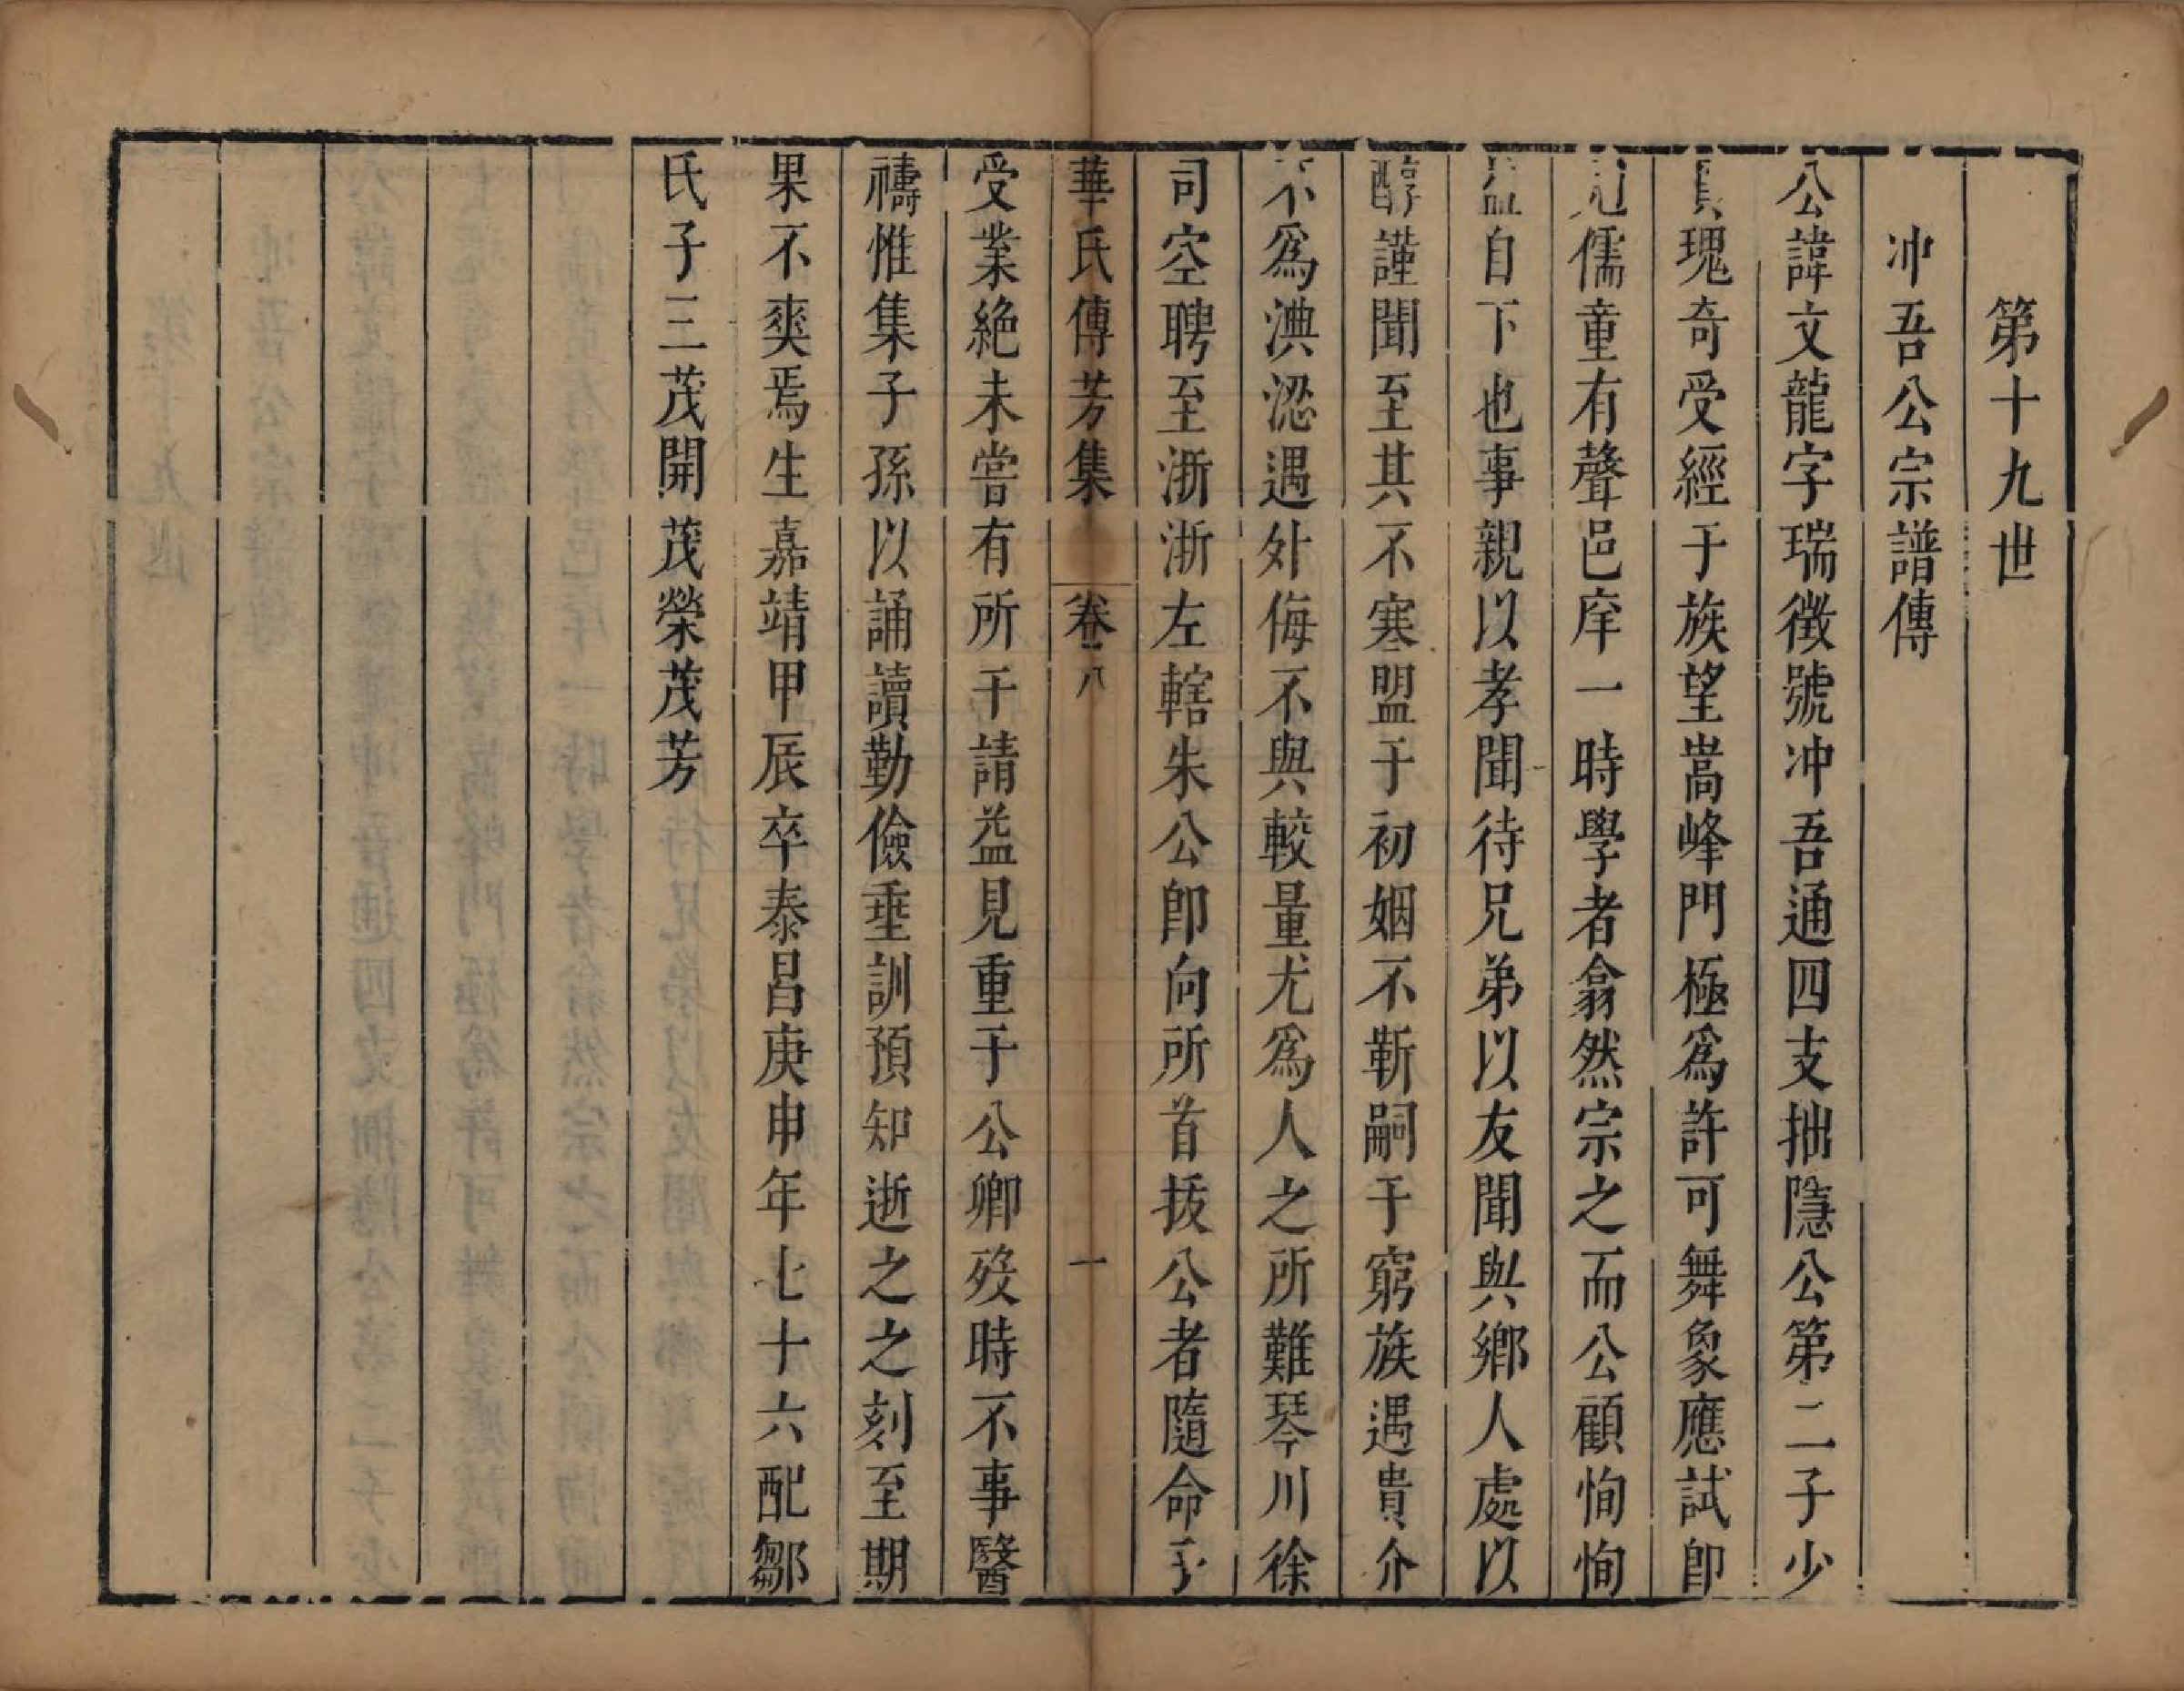 第十九世
冲吾公宗譜傳
公諱文龍字瑞徵號冲吾通四支拙隱公第二子少
負瑰奇受經于族望嵩峰門極爲許可舞象應試卽
冠儒童有聲邑庠一時學者翕然宗之而公顧恂恂
益自下也事親以孝聞待兄弟以友聞與鄉人處以
醇謹聞至其不寒盟于初姻不靳嗣于窮族遇貴介
不爲淟涊遇外侮不與較量尤爲人之所難琴川徐
司空聘至浙浙左轄朱公卽向所首拔公者隨命子
華氏傳芳集 卷八 一
受業絶未嘗有所干請益見重于公卿歿時不事醫
禱惟集子孫以誦讀勤儉垂訓預知逝之之刻至期
果不爽焉生嘉靖甲辰卒泰昌庚申年七十六配鄒
氏子三茂開茂榮茂芳